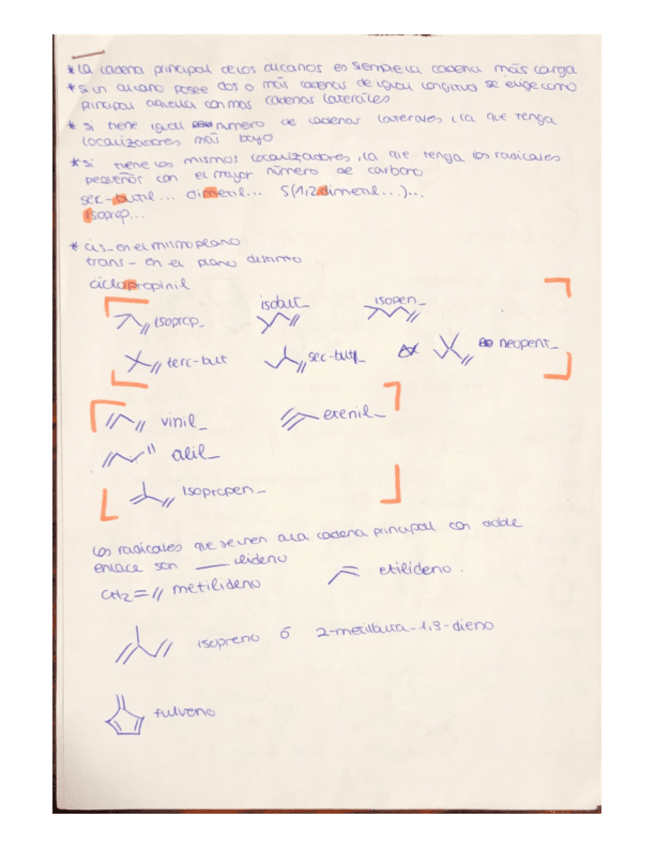 * La cadena principal de los alcanos es siempre la cadena más larga
* si un alcano posee dos o más cadenas de igual longitud se elige como
principal aquella con mas cadenas laterales
* si tiene igual numero de cadenas laterales, la que tenga
localizadores más bajo
* si tiene los mismos localizadores, la que tenga los radicales
pequeños con el mayor número de carbono
sec-butil... dimetil... 5(1,2dimetil...)...
isoprop...
* cis_ en el mismo plano
trans_ en el plano distinto
ciclopropinil
isoprop_ isobut_ isopen_
terc-but sec-but_ neopent_
vinil_ etenil_
alil_
isopropen_
Los radicales que se unen a la cadena principal con doble
enlace son ___ ilideno
CH2= // metilideno etilideno.
isopreno ó 2-metilbuta-1,3-dieno
fulveno